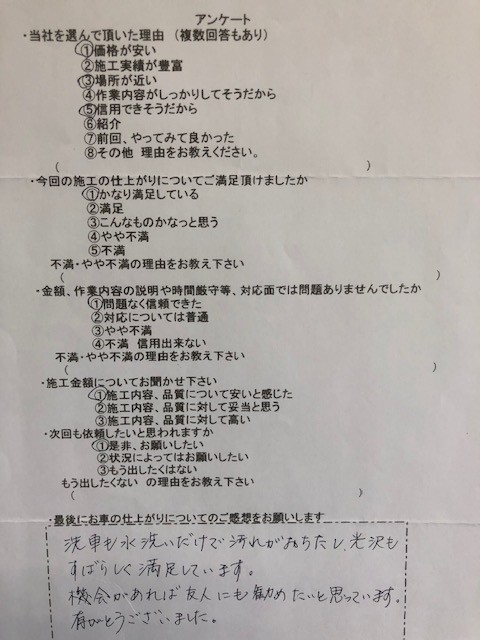 アンケート
・当社を選んで頂いた理由 （複数回答もあり）
①価格が安い
②施工実績が豊富
③場所が近い
④作業内容がしっかりしてそうだから
⑤信用できそうだから
⑥紹介
⑦前回、やってみて良かった
⑧その他 理由をお教えください。
( )
・今回の施工の仕上がりについてご満足頂けましたか
①かなり満足している
②満足
③こんなものかなっと思う
④やや不満
⑤不満
不満・やや不満の理由をお教え下さい
( )
・金額、作業内容の説明や時間厳守等、対応面では問題ありませんでしたか
①問題なく信頼できた
②対応については普通
③やや不満
④不満 信用出来ない
不満・やや不満の理由をお教え下さい
( )
・施工金額についてお聞かせ下さい
①施工内容、品質について安いと感じた
②施工内容、品質に対して妥当と思う
③施工内容、品質に対して高い
・次回も依頼したいと思われますか
①是非、お願いしたい
②状況によってはお願いしたい
③もう出したくはない
もう出したくない の理由をお教え下さい
( )
・最後にお車の仕上がりについてのご感想をお願いします
洗車も水洗いだけで汚れがおちたし、光沢も
すばらしく満足しています。
機会があれば友人にも勧めたいと思っています。
有がとうございました。